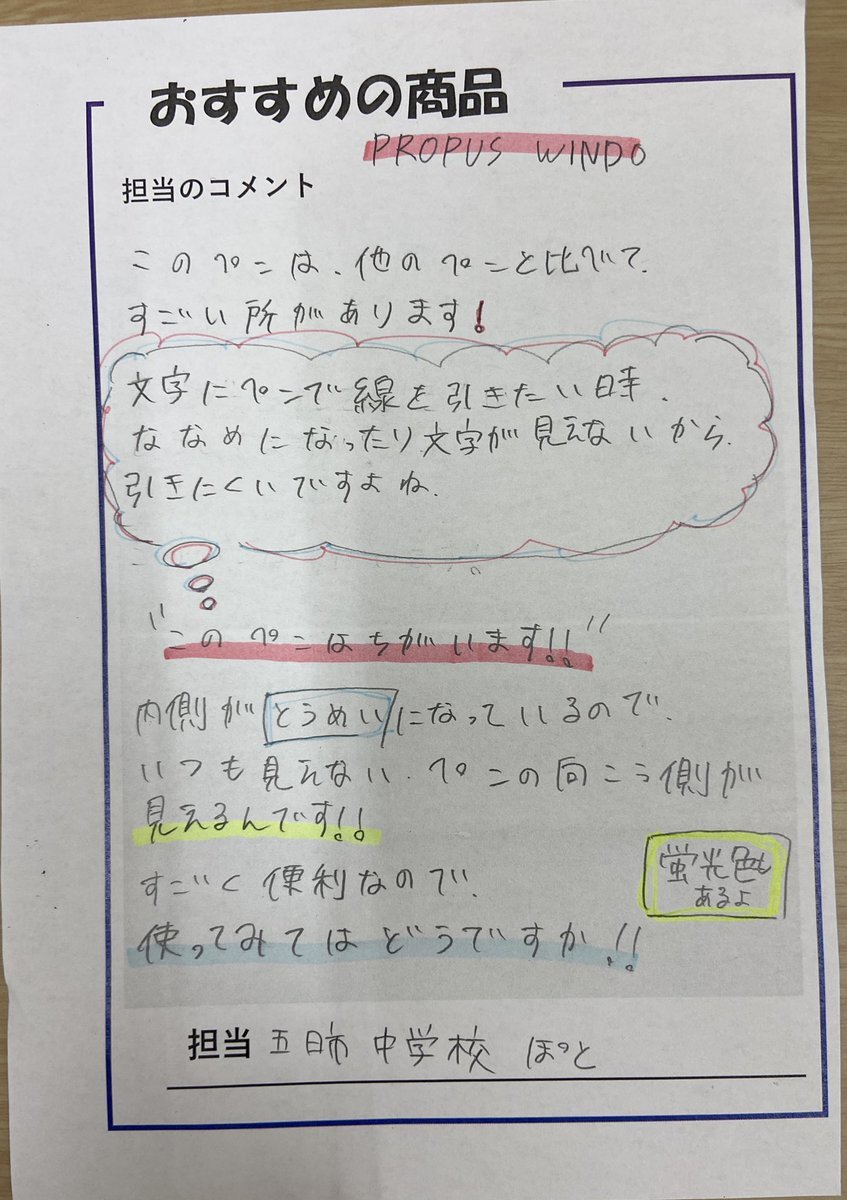 おすすめの商品
PROPUS WINDO
担当のコメント
このペンは、他のペンと比べて、
すごい所があります!
文字にペンで線を引きたい時、
ななめになったり文字が見えないから、
引きにくいですよね。
"このペンはちがいます!!"
内側がとうめいになっているので、
いつも見えない、ペンの向こう側が
見えるんです!!
蛍光色も
あるよ
すごく便利なので、
使ってみてはどうですか!!
担当 五日市中学校 ぽっと